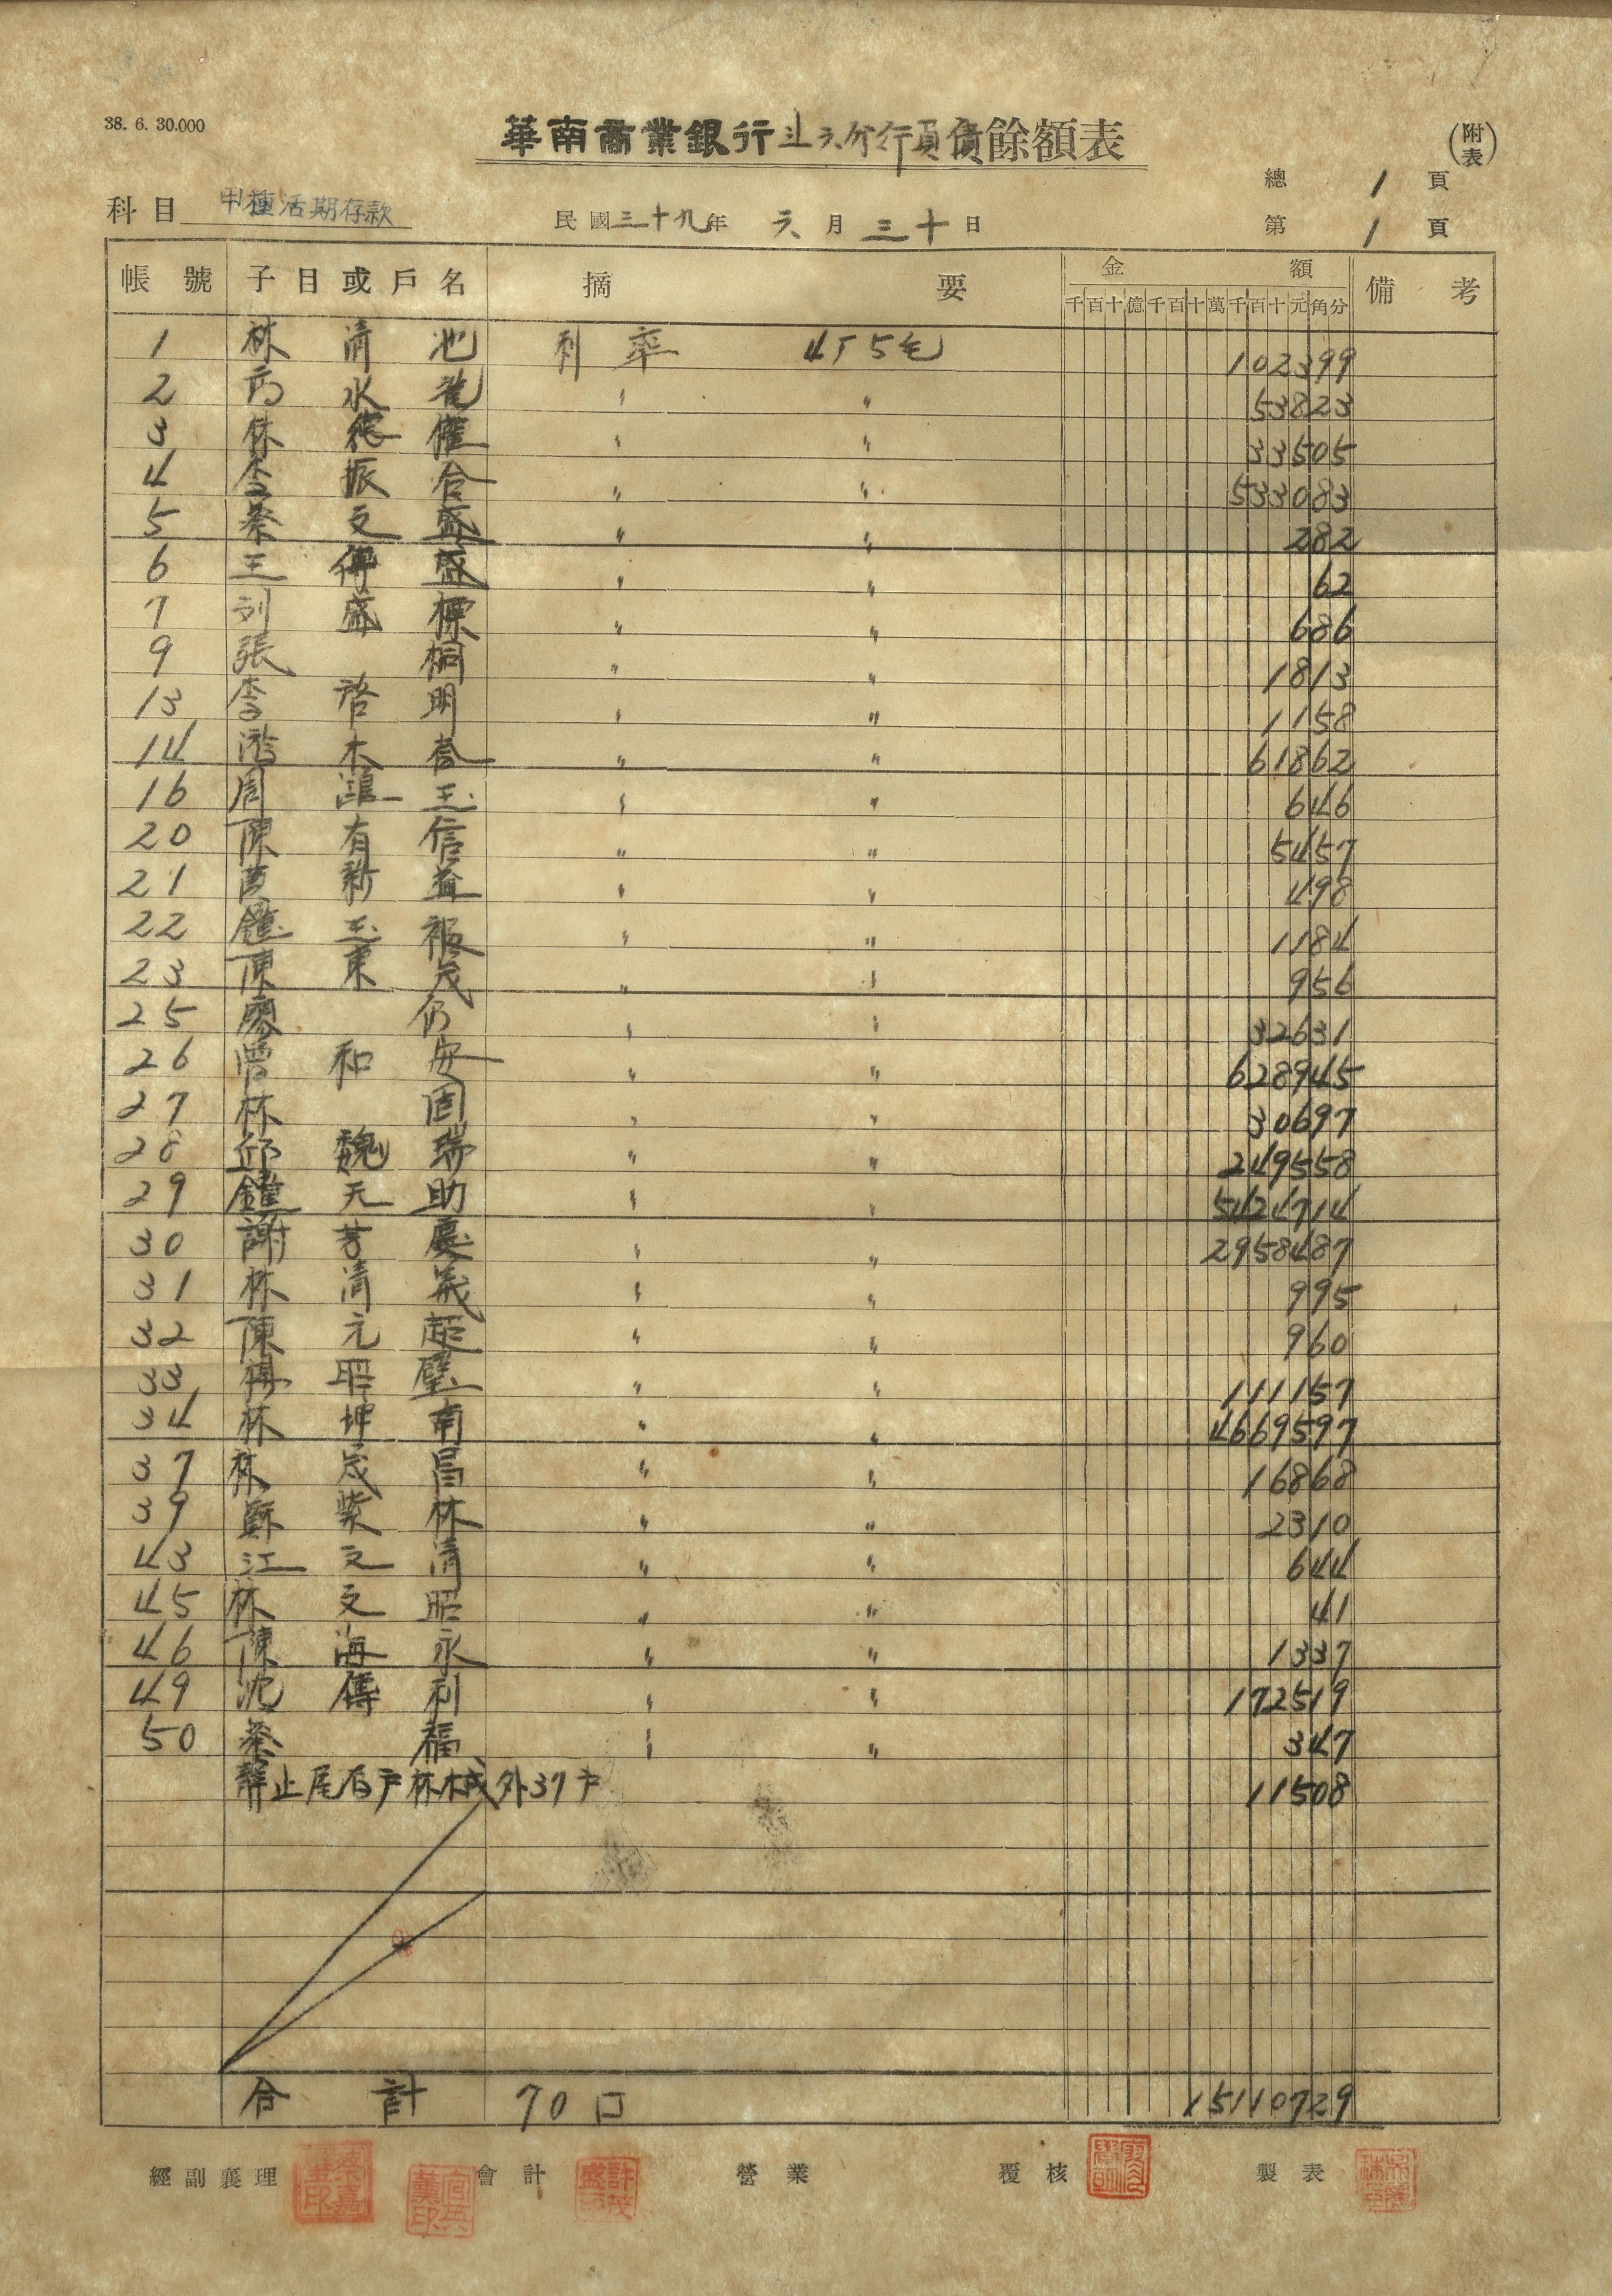 38. 6. 30.000
華南商業銀行斗六分行員債餘額表
(附表)
總 1 頁
科目 甲種活期存款
民國三十九年 六月三十日
第 1 頁
帳號 子目或戶名 摘要 金額 備考
千百十億千百十萬千百十元角分
1 林清池 利率 4T5毛 102399
2 水 〃 〃 53823
3 林 〃 〃 33505
4 李振台 〃 〃 533083
5 蔡文盛 〃 〃 282
6 王傳盛 〃 〃 62
7 劉盛標 〃 〃 686
9 張桐 〃 〃 1813
13 李啓明 〃 〃 1158
14 木 〃 〃 61862
16 周玉 〃 〃 646
20 陳有信 〃 〃 5457
21 黄新益 〃 〃 498
22 鐘玉福 〃 〃 1184
23 陳東茂 〃 〃 956
25 廖仍 〃 〃 32631
26 曾和安 〃 〃 628945
27 林固 〃 〃 30697
28 邱魏瑞 〃 〃 249558
29 鐘天助 〃 〃 5424714
30 謝芳慶 〃 〃 2958487
31 林清義 〃 〃 995
32 陳元起 〃 〃 960
33 楊昭璧 〃 〃 111157
34 林坤南 〃 〃 4669597
37 林茂昌 〃 〃 16868
39 蘇紫林 〃 〃 2310
43 江文清 〃 〃 644
45 林文昭 〃 〃 41
46 陳海永 〃 〃 1337
49 沈傳利 〃 〃 172519
50 蔡福 〃 〃 347
靜止尾百戶林木成外37戶 11508
合計 70口 15110729
經副襄理 會計 營業 覆核 製表